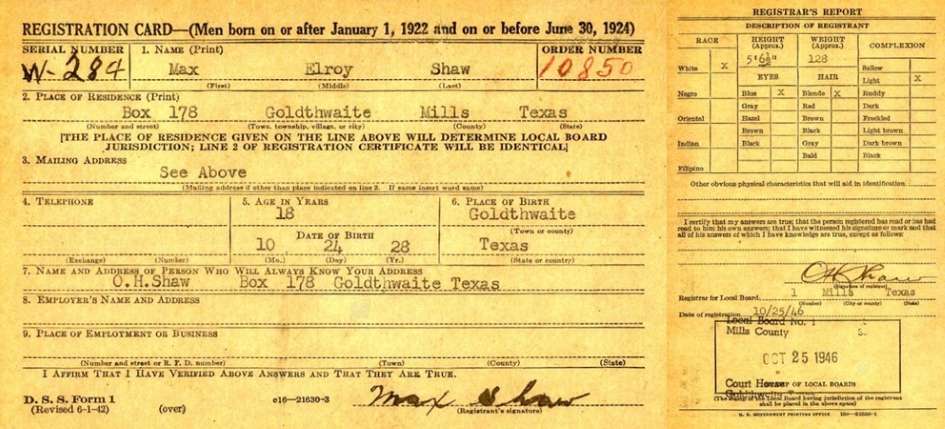 REGISTRATION CARD—(Men born on or after January 1, 1922 and on or before June 30, 1924)
SERIAL NUMBER 1. NAME (Print) ORDER NUMBER
W-284 Max Elroy Shaw 10850
(First) (Middle) (Last)
2. PLACE OF RESIDENCE (Print)
Box 178 Goldthwaite Mills Texas
(Number and street) (Town, township, village, or city) (County) (State)
[THE PLACE OF RESIDENCE GIVEN ON THE LINE ABOVE WILL DETERMINE LOCAL BOARD
JURISDICTION; LINE 2 OF REGISTRATION CERTIFICATE WILL BE IDENTICAL]
3. MAILING ADDRESS
See Above
(Mailing address if other than place indicated on line 2. If same insert word same)
4. TELEPHONE 5. AGE IN YEARS 6. PLACE OF BIRTH
18 Goldthwaite
DATE OF BIRTH (Town or county)
10 24 28 Texas
(Exchange) (Number) (Mo.) (Day) (Yr.) (State or country)
7. NAME AND ADDRESS OF PERSON WHO WILL ALWAYS KNOW YOUR ADDRESS
O.H.Shaw Box 178 Goldthwaite Texas
8. EMPLOYER'S NAME AND ADDRESS
9. PLACE OF EMPLOYMENT OR BUSINESS
(Number and street or R. F. D. number) (Town) (County) (State)
I AFFIRM THAT I HAVE VERIFIED ABOVE ANSWERS AND THAT THEY ARE TRUE.
D. S. S. Form 1
(Revised 6-1-42) (over) c16—21630-3 Max Shaw
(Registrant's signature)
REGISTRAR'S REPORT
DESCRIPTION OF REGISTRANT
RACE HEIGHT (Approx.) WEIGHT (Approx.) COMPLEXION
5' 6½" 128
White X Sallow
EYES HAIR Light X
Negro Blue X Blonde X Ruddy
Gray Red Dark
Oriental Hazel Brown Freckled
Brown Black Light brown
Indian Black Gray Dark brown
Bald Black
Filipino
Other obvious physical characteristics that will aid in identification
I certify that my answers are true; that the person registered has read or has had
read to him his own answers; that I have witnessed his signature or mark and that
all of his answers of which I have knowledge are true, except as follows:
OH Shaw
(Signature of registrar)
Registrar for Local Board 1 Mills Texas
(Number) (City or county) (State)
Date of registration 10/25/46
Local Board No. 1
Mills County
OCT 25 1946
Court House
OF LOCAL BOARDS
(The stamp of the Local Board having jurisdiction of the registrant
shall be placed in the above space)
U. S. GOVERNMENT PRINTING OFFICE